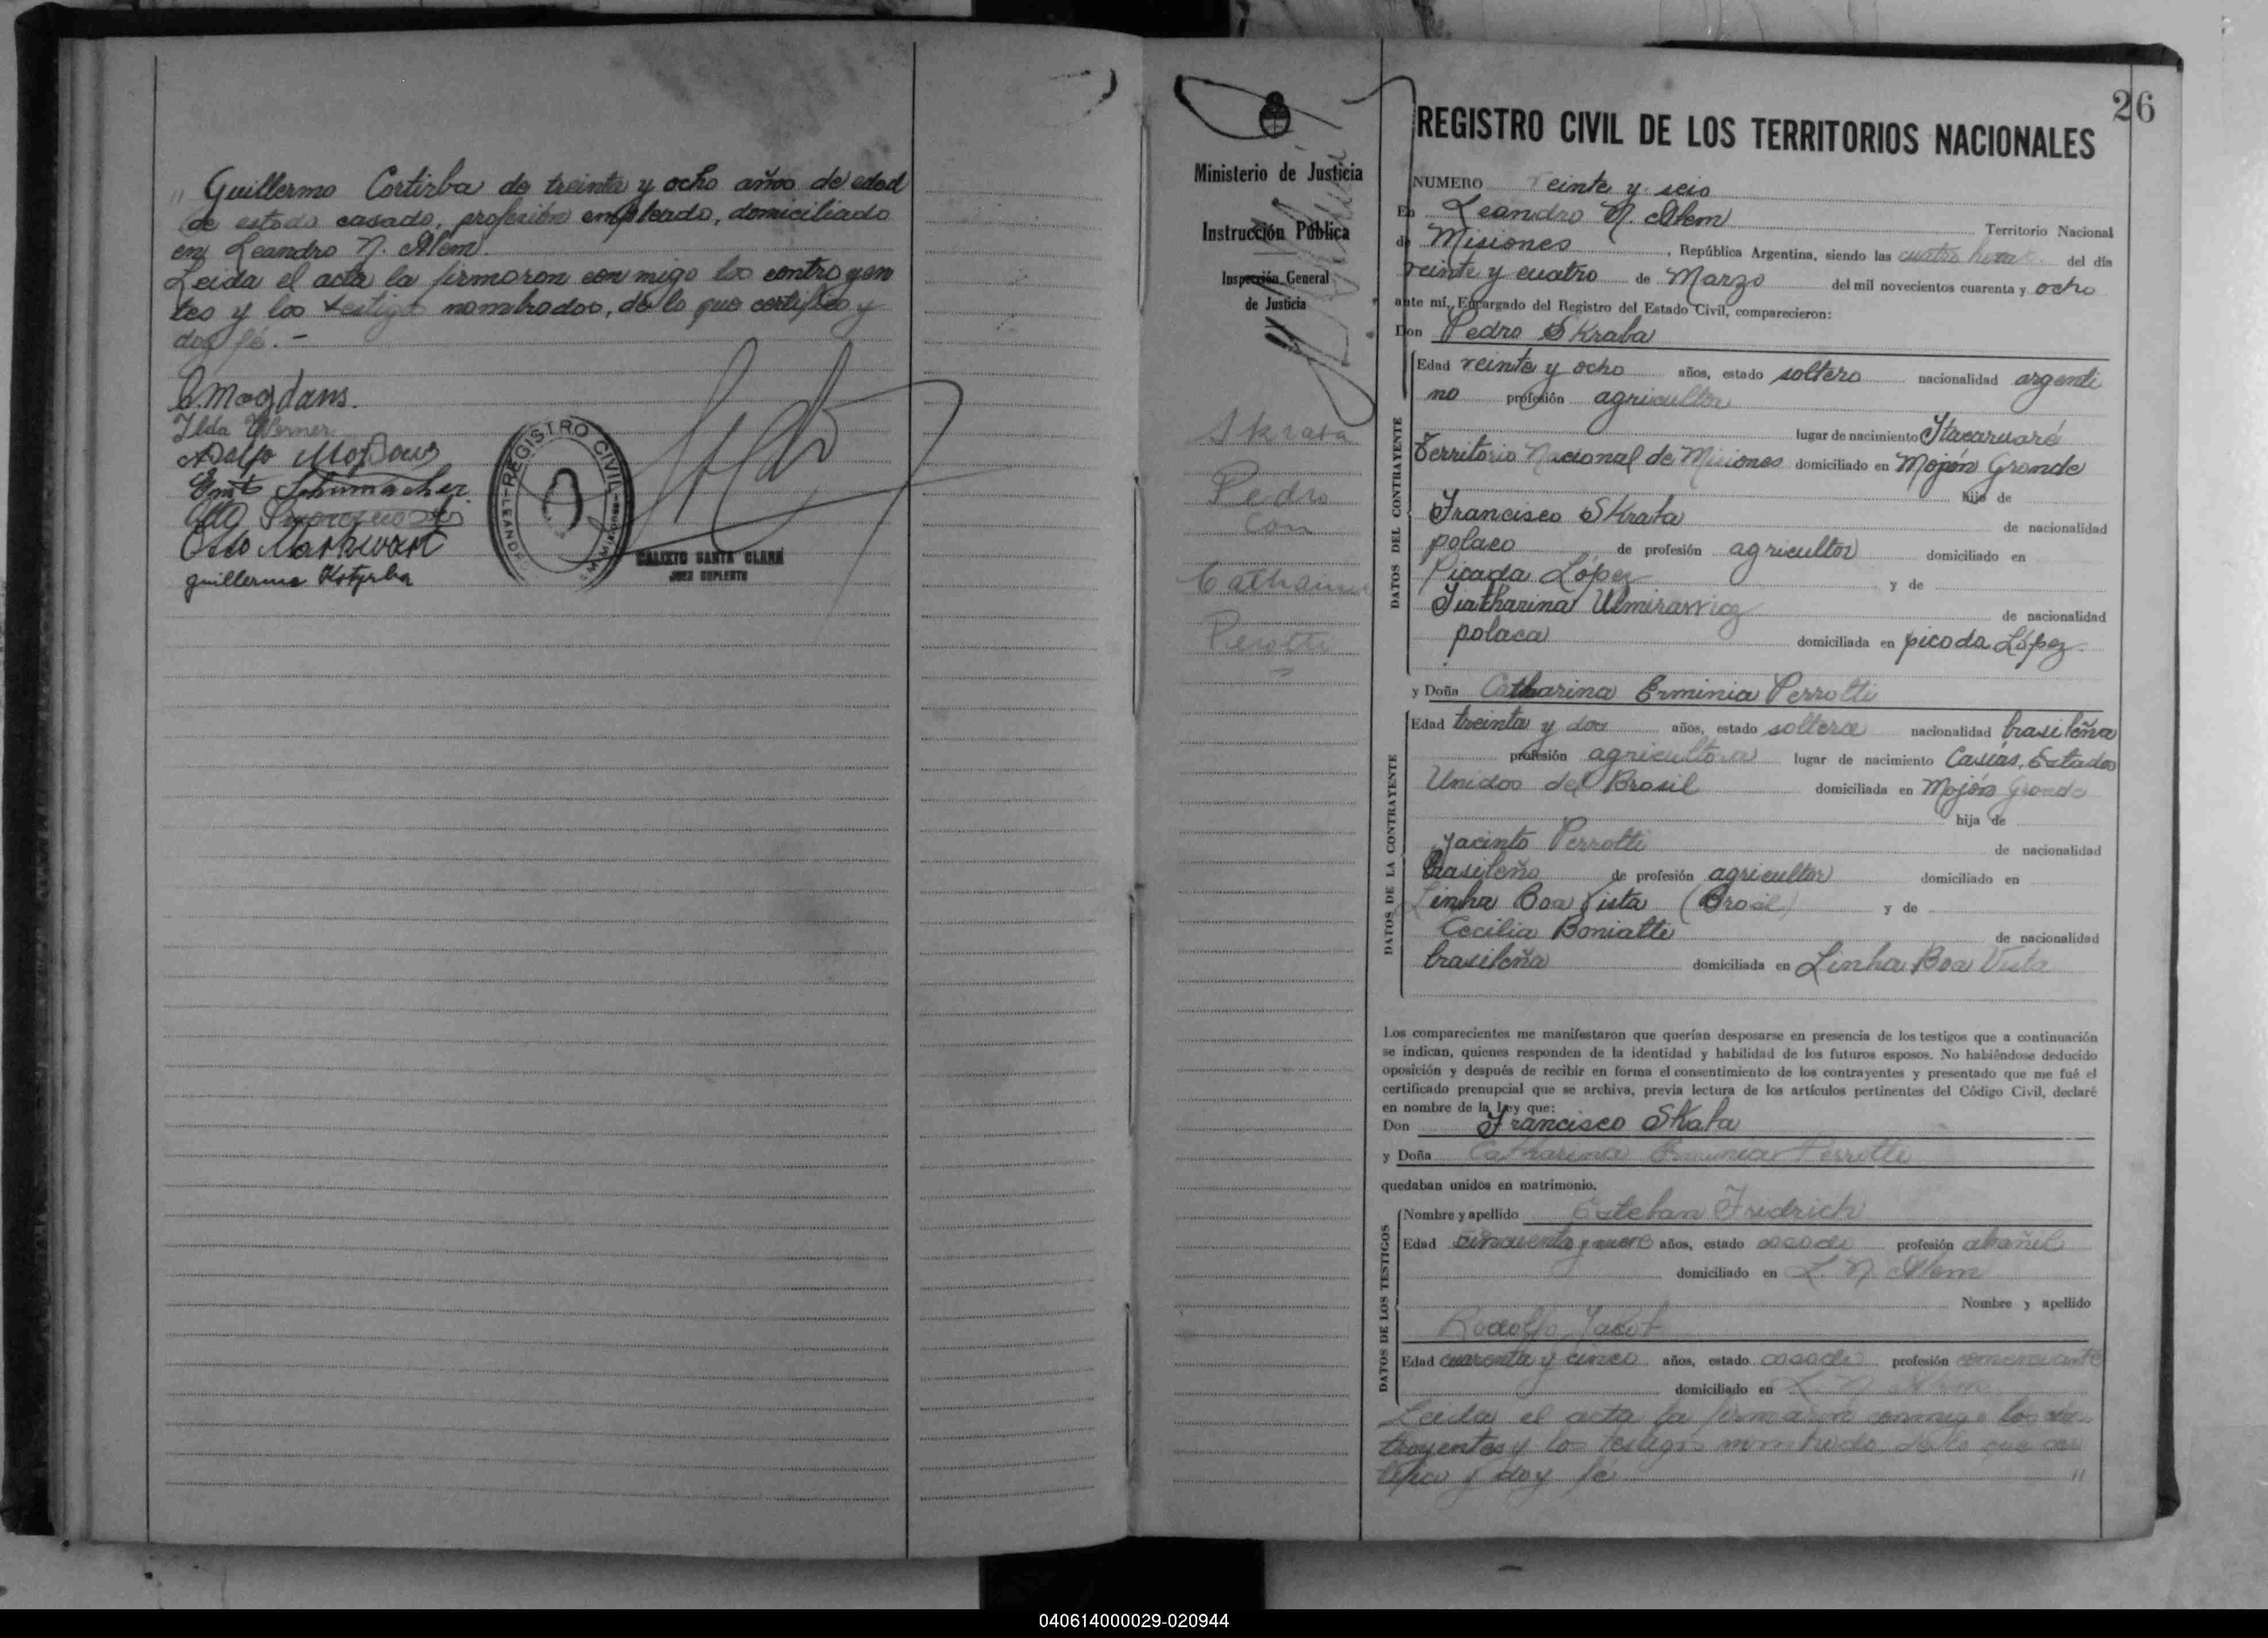 " Guillermo Cortirba de treinta y ocho años de edad
de estado casado, profesión empleado, domiciliado
en Leandro N. Alem.
Leida el acta la firmaron conmigo los contrayen
tes y los testigos nombrados, de lo que certifico y
doy fé. -
Ilda Werner
Otto Markwart
guillermo Kotyrba
REGISTRO CIVIL
CALIXTO SANTA CLARA
JUEZ SUPLENTE
26
Ministerio de Justicia
e
Instrucción Pública
Inspección General
de Justicia
Skraba
Pedro
con
Catharina
Perotti
REGISTRO CIVIL DE LOS TERRITORIOS NACIONALES
NUMERO veinte y seis
En Leandro N. Alem Territorio Nacional
de Misiones, República Argentina, siendo las cuatro horas del día
veinte y cuatro de Marzo del mil novecientos cuarenta y ocho
ante mí, Encargado del Registro del Estado Civil, comparecieron:
Don Pedro Skraba
DATOS DEL CONTRAYENTE
Edad veinte y ocho años, estado soltero nacionalidad argenti
no profesión agricultor
lugar de nacimiento Itacaruaré
Territorio Nacional de Misiones domiciliado en Mojón Grande
hijo de
Francisco Skraba de nacionalidad
polaco de profesión agricultor domiciliado en
Picada López y de
de nacionalidad
polaca domiciliada en picada López
y Doña Catharina Erminia Perrotti
DATOS DE LA CONTRAYENTE
Edad treinta y dos años, estado soltera nacionalidad brasileña
profesión agricultora lugar de nacimiento Casias, Estados
Unidos del Brasil domiciliada en Mojón Grande
hija de
Jacinto Perrotti de nacionalidad
Brasileño de profesión agricultor domiciliado en
Linha Boa Vista (Brasil) y de
Cecilia Boniatti de nacionalidad
brasileña domiciliada en Linha Boa Vista
Los comparecientes me manifestaron que querían desposarse en presencia de los testigos que a continuación
se indican, quienes responden de la identidad y habilidad de los futuros esposos. No habiéndose deducido
oposición y después de recibir en forma el consentimiento de los contrayentes y presentado que me fué el
certificado prenupcial que se archiva, previa lectura de los artículos pertinentes del Código Civil, declaré
en nombre de la Ley que:
Don Francisco Skaba
y Doña Catharina Erminia Perrotti
quedaban unidos en matrimonio.
DATOS DE LOS TESTIGOS
Nombre y apellido Esteban Fridrich
Edad cincuenta y nueve años, estado casado profesión albañil
domiciliado en L. N. Alem
Nombre y apellido
Rodolfo Jacot
Edad cuarenta y cinco años, estado casado profesión comerciante
domiciliado en L. N. Alem
Leida el acta la firmaron conmigo los con
trayentes y los testigos nombrados, de lo que cer
tifico y doy fé "
040614000029-020944